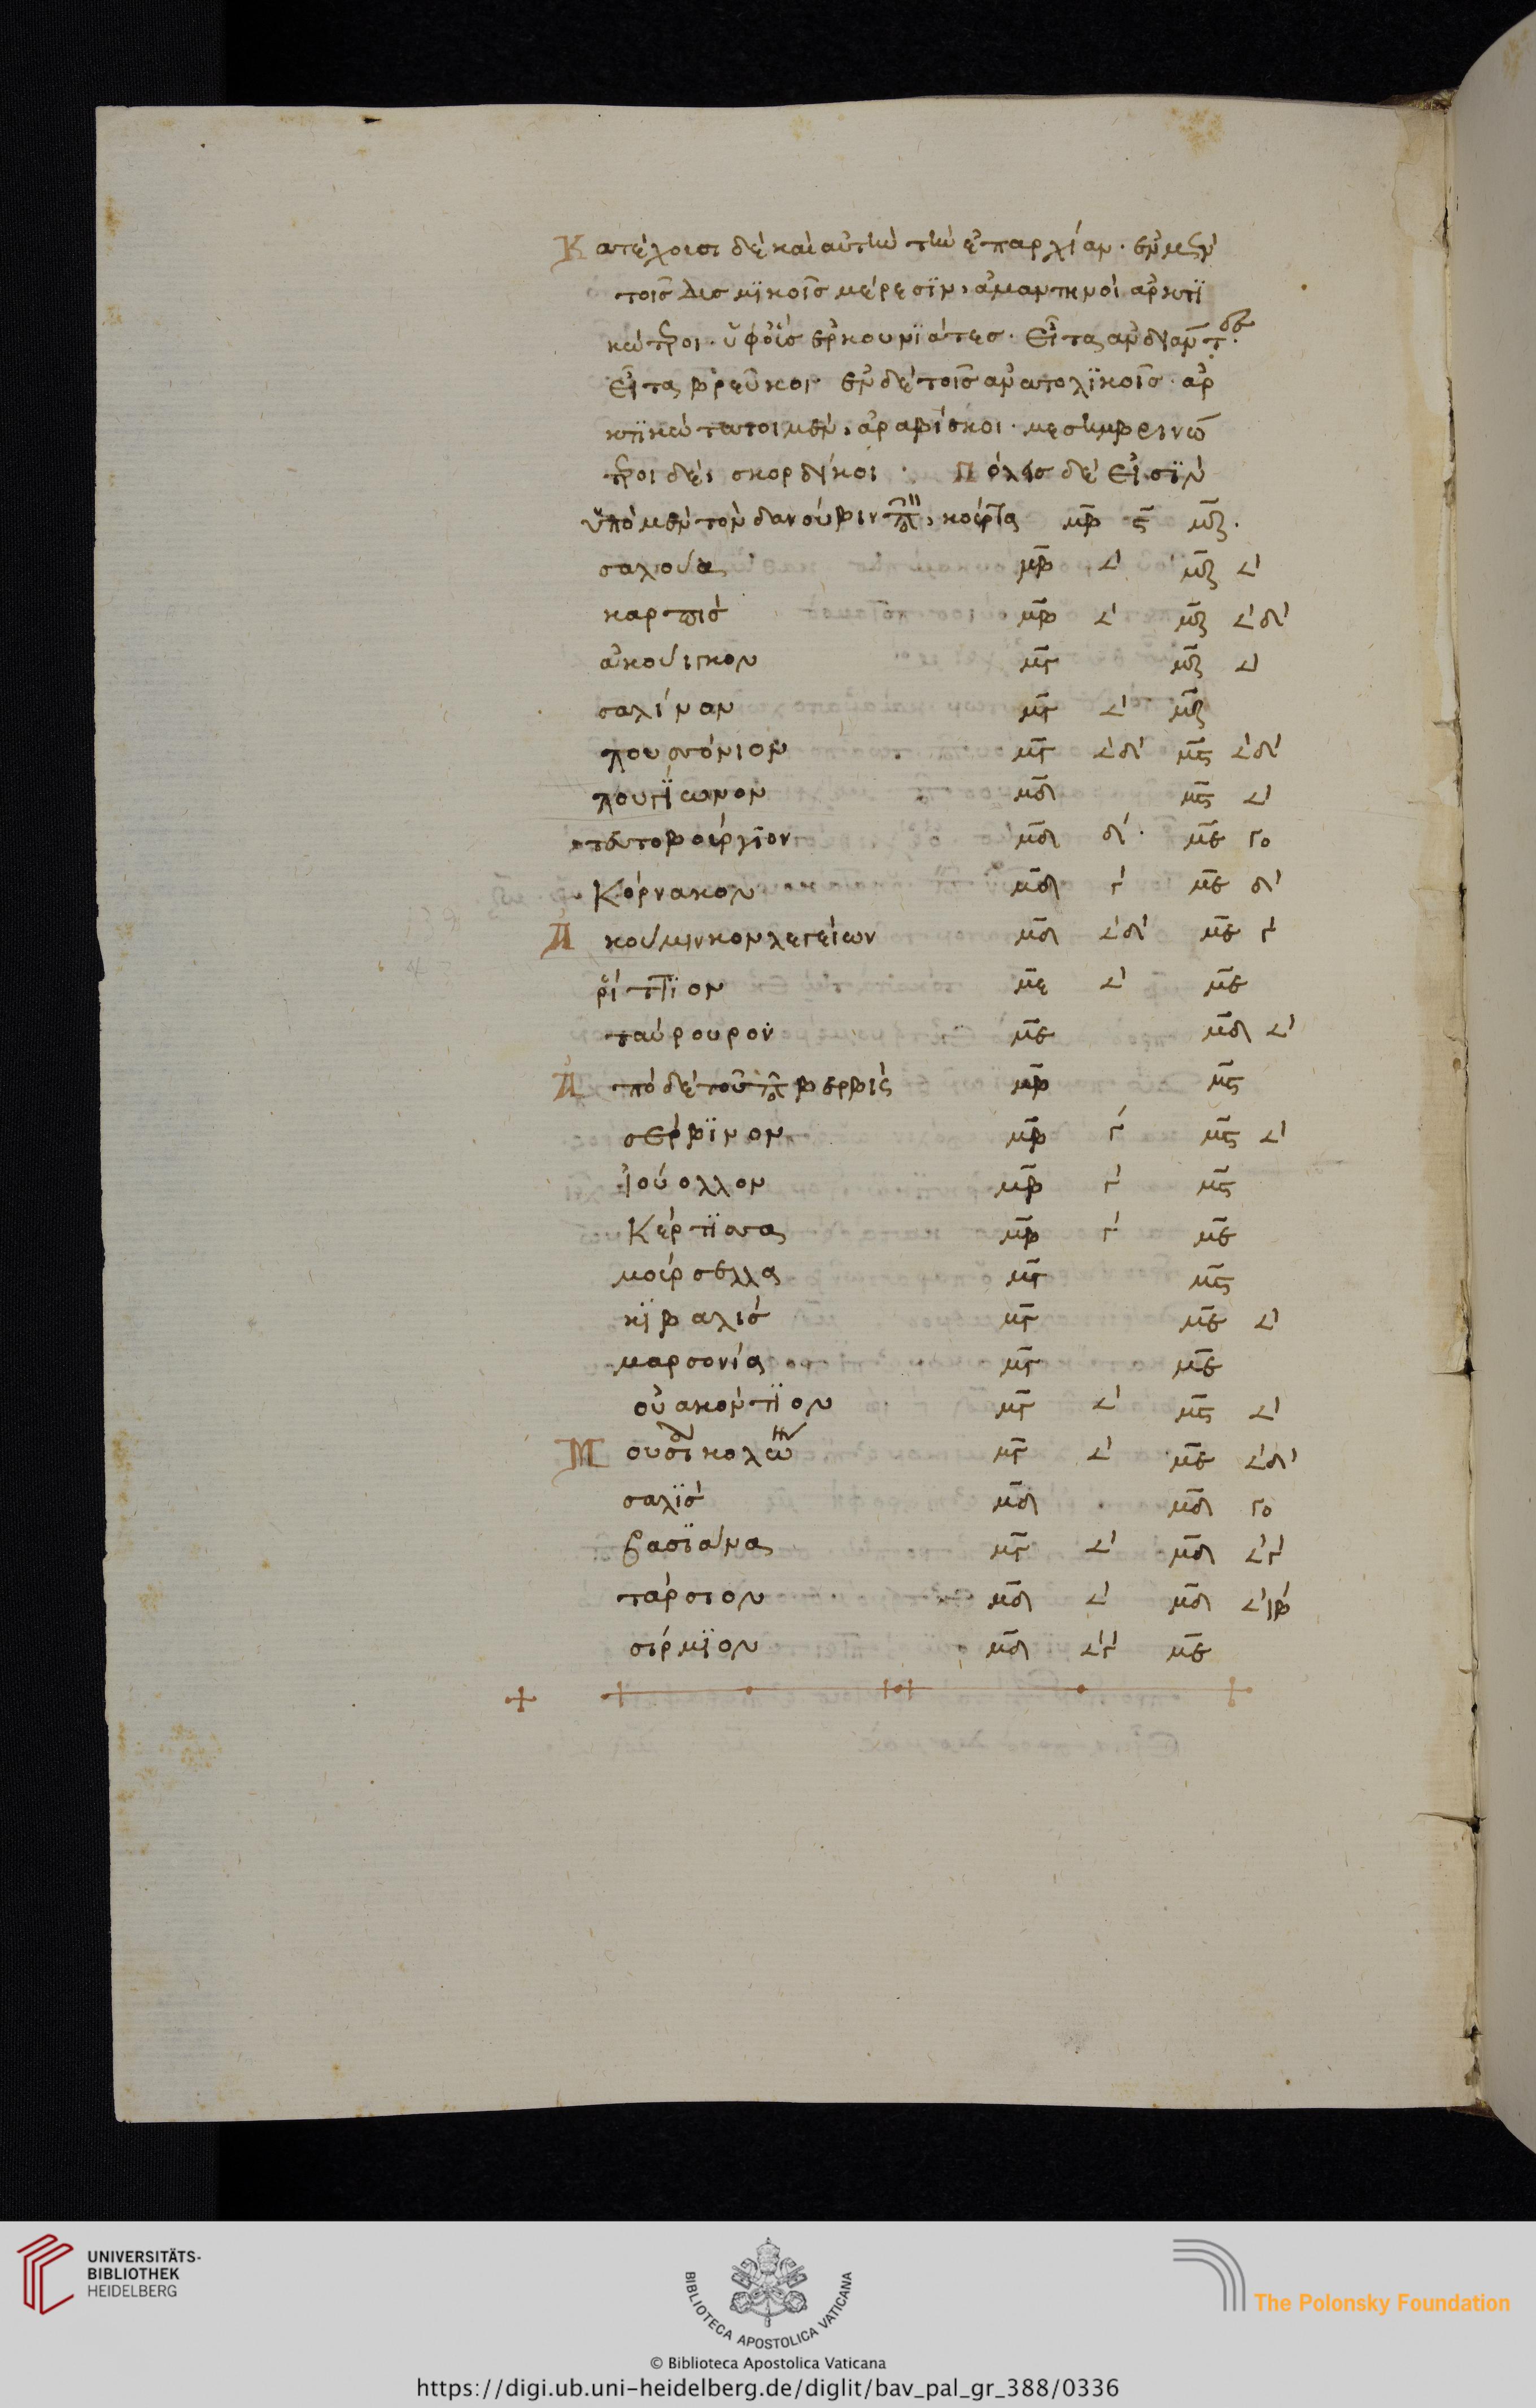 Κατέχουσι δὲ καὶ αὐτὴν τὴν ἐπαρχίαν· ἐν μὲν
τοῖς δυσμϊκοῖς μέρεσϊν, ἀμαντηνοὶ ἀρκτϊ
κώτεροι· ὑφ' οὓς ἑρκουνϊάτες· εἶτα ἀνδίαντες·
εἶτα βρεῦκοι· ἐν δὲ τοῖς ἀνατολϊκοῖς· ἀρ
κτϊκώτατοι μὲν, ἀραβίσκοι· μεσημβρινώ
τεροι δὲ, σκορδίσκοι· Πόλεις δὲ εἰσϊν
ὑπὸ μὲν τὸν δανούβιν, κούρτα μβ ϛ μζ·
σαλούα μβ 𐅵 μζ 𐅵
καρπὶς μβ 𐅵 μζ 𐅵δ
ἀκούιγκον μγ μζ 𐅵
σαλίναν μγ 𐅵 μζ
λουσσόνιον μγ 𐅵δ μϛ 𐅵δ
λουγϊωνον μδ μϛ 𐅵
τευτοβούργϊον μδ δ· με γο
Κόρνακον μδ γ με δ
Ἀκούμινκον λεγείων μδ 𐅵δ με γ
ῥίττϊον με 𐅵 με
ταύρουρον με μδ 𐅵
Ἀπὸ δὲ τοῦ βερβὶς μβ μϛ
σέρβϊνον μβ γ μϛ 𐅵
ἰούολλον μβ γ μϛ
Κέρτϊσσα μβ γ με
μούρσελλα μγ μϛ
κϊβαλὶς μγ με 𐅵
μαρσονία μγ με
οὐακόντϊον μγ 𐅵 μϛ 𐅵
Μουρσία κολων μγ 𐅵 με 𐅵δ
σαλϊς μδ μδ γο
βασϊάνα μγ 𐅵 μδ 𐅵γ
τάρσιον μδ 𐅵 μδ 𐅵ιβ
σίρμϊον μδ 𐅵γ με
UNIVERSITÄTS-
BIBLIOTHEK
HEIDELBERG
BIBLIOTECA APOSTOLICA VATICANA
The Polonsky Foundation
© Biblioteca Apostolica Vaticana
https://digi.ub.uni-heidelberg.de/diglit/bav_pal_gr_388/0336